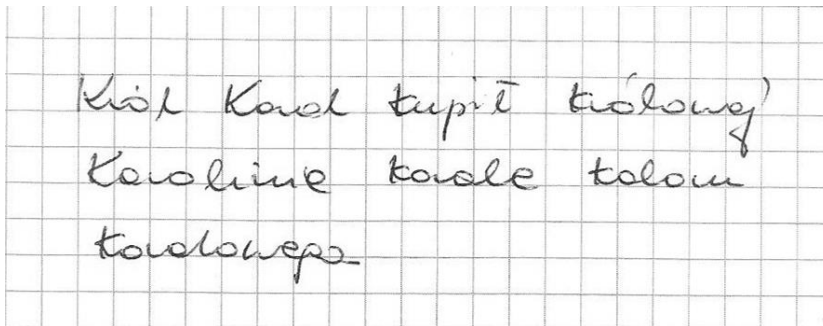 Król Karol kupił królowej
Karolinie korale koloru
koralowego